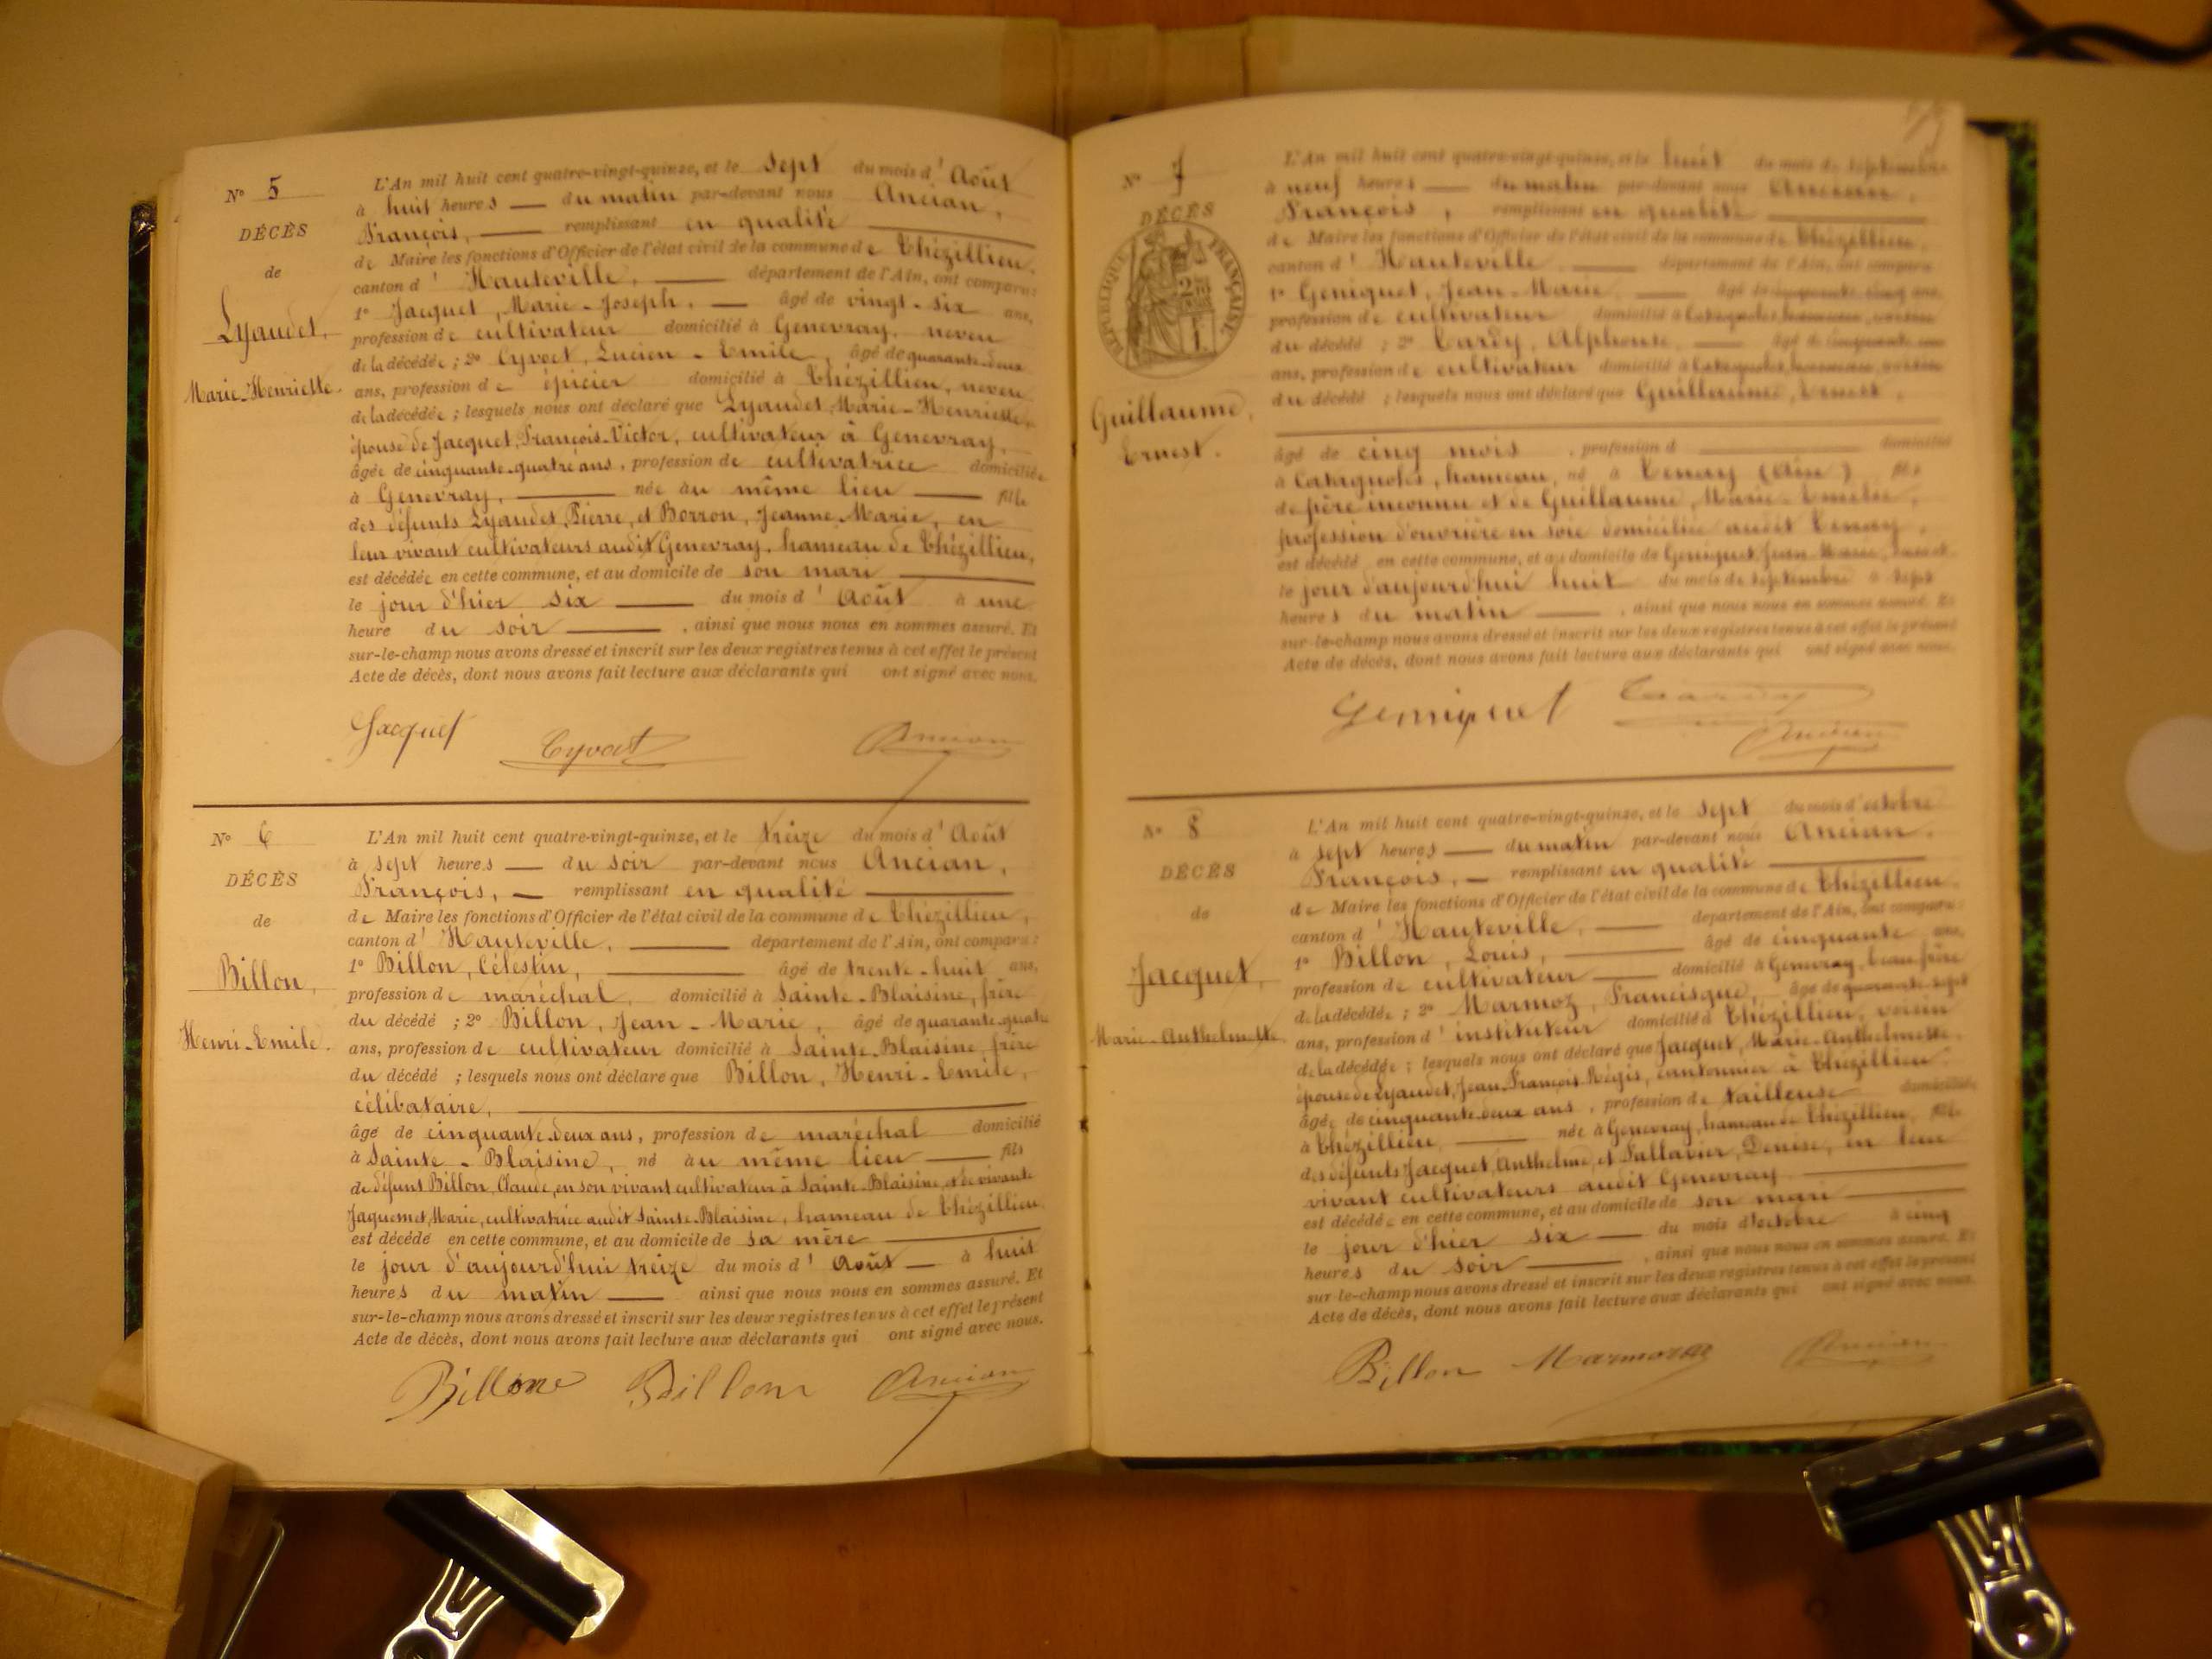 N° 5
DÉCÈS
de
Lyaudet,
Marie-Henriette.
L'An mil huit cent quatre-vingt-quinze, et le sept du mois d'Août
à huit heures — du matin par-devant nous Ancian,
François, — remplissant en qualité
de Maire les fonctions d'Officier de l'état civil de la commune de Thézillieu,
canton d'Hauteville, — département de l'Ain, ont comparu:
1° Jacquet, Marie-Joseph, — âgé de vingt-six ans,
profession de cultivateur domicilié à Genevray, neveu
de la décédée; 2° Cyvoct, Lucien-Emile, âgé de quarante-deux
ans, profession de épicier domicilié à Thézillieu, neveu
de la décédée; lesquels nous ont déclaré que Lyaudet, Marie-Henriette,
épouse de Jacquet, François-Victor, cultivateur à Genevray,
âgée de cinquante-quatre ans, profession de cultivatrice domiciliée
à Genevray, — née au même lieu — fille
des défunts Lyaudet, Pierre, et Borron, Jeanne-Marie, en
leur vivant cultivateurs audit Genevray, hameau de Thézillieu,
est décédée en cette commune, et au domicile de son mari
le jour d'hier six — du mois d'Août à une
heure du soir — , ainsi que nous nous en sommes assuré. Et
sur-le-champ nous avons dressé et inscrit sur les deux registres tenus à cet effet le présent
Acte de décès, dont nous avons fait lecture aux déclarants qui ont signé avec nous.
Jacquet Cyvoct Ancian
N° 6
DÉCÈS
de
Billon,
Henri-Emile.
L'An mil huit cent quatre-vingt-quinze, et le treize du mois d'Août
à sept heures — du soir par-devant nous Ancian,
François, — remplissant en qualité
de Maire les fonctions d'Officier de l'état civil de la commune de Thézillieu,
canton d'Hauteville, — département de l'Ain, ont comparu:
1° Billon, Célestin, — âgé de trente-huit ans,
profession de maréchal, domicilié à Sainte-Blaisine, frère
du décédé; 2° Billon, Jean-Marie, âgé de quarante-quatre
ans, profession de cultivateur domicilié à Sainte-Blaisine, frère
du décédé; lesquels nous ont déclaré que Billon, Henri-Emile,
célibataire,
âgé de cinquante-deux ans, profession de maréchal domicilié
à Sainte-Blaisine, né au même lieu — fils
de défunt Billon, Claude, en son vivant cultivateur à Sainte-Blaisine, et de vivante
Jaquemet, Marie, cultivatrice audit Sainte-Blaisine, hameau de Thézillieu
est décédé en cette commune, et au domicile de sa mère
le jour d'aujourd'hui treize du mois d'Août — à huit
heures du matin — ainsi que nous nous en sommes assuré. Et
sur-le-champ nous avons dressé et inscrit sur les deux registres tenus à cet effet le présent
Acte de décès, dont nous avons fait lecture aux déclarants qui ont signé avec nous.
Billon Billon Ancian
N° 7
DÉCÈS
RÉPUBLIQUE FRANÇAISE
Guillaume,
Ernest.
L'An mil huit cent quatre-vingt-quinze, et le huit du mois de septembre
à neuf heures — du matin par-devant nous Ancian,
François, remplissant en qualité
de Maire les fonctions d'Officier de l'état civil de la commune de Thézillieu,
canton d'Hauteville — département de l'Ain, ont comparu
1° Geniquet, Jean-Marie, — âgé de ans,
profession de cultivateur domicilié à
du décédé; 2° Tardy, Alphonse, — âgé de
ans, profession de cultivateur domicilié à
du décédé; lesquels nous ont déclaré que Guillaume, Ernest,
âgé de cinq mois, profession d — domicilié
à Catagnoles, hameau, né à Tenay (Ain) fils
de père inconnu et de Guillaume, Marie-Emelie,
profession d'ouvrière en soie domiciliée audit Tenay,
est décédé en cette commune, et au domicile de Geniquet, Jean-Marie,
le jour d'aujourd'hui huit du mois de septembre à sept
heures du matin — , ainsi que nous nous en sommes assuré. Et
sur-le-champ nous avons dressé et inscrit sur les deux registres tenus à cet effet le présent
Acte de décès, dont nous avons fait lecture aux déclarants qui ont signé avec nous.
Geniquet Tardy Ancian
N° 8
DÉCÈS
de
Jacquet,
Marie-Anthelmette.
L'An mil huit cent quatre-vingt-quinze, et le sept du mois d'octobre
à sept heures — du matin par-devant nous Ancian,
François, — remplissant en qualité
de Maire les fonctions d'Officier de l'état civil de la commune de Thézillieu
canton d'Hauteville, — département de l'Ain, ont comparu:
1° Billon, Louis, — âgé de cinquante ans,
profession de cultivateur — domicilié à Genevray, beau-frère
de la décédée; 2° Marmoz, Francisque, âgé de quarante-sept
ans, profession d'instituteur domicilié à Thézillieu, voisin
de la décédée; lesquels nous ont déclaré que Jacquet, Marie-Anthelmette,
épouse de Lyaudet, Jean-François-Régis, cantonnier à Thézillieu,
âgée de cinquante-deux ans, profession de tailleuse domiciliée
à Thézillieu, — née à Genevray, hameau de Thézillieu, fille
des défunts Jacquet, Anthelme, et Fallavier, Denise, en leur
vivant cultivateurs audit Genevray
est décédée en cette commune, et au domicile de son mari
le jour d'hier six — du mois d'octobre à cinq
heures du soir — , ainsi que nous nous en sommes assuré. Et
sur-le-champ nous avons dressé et inscrit sur les deux registres tenus à cet effet le présent
Acte de décès, dont nous avons fait lecture aux déclarants qui ont signé avec nous.
Billon Marmoz Ancian